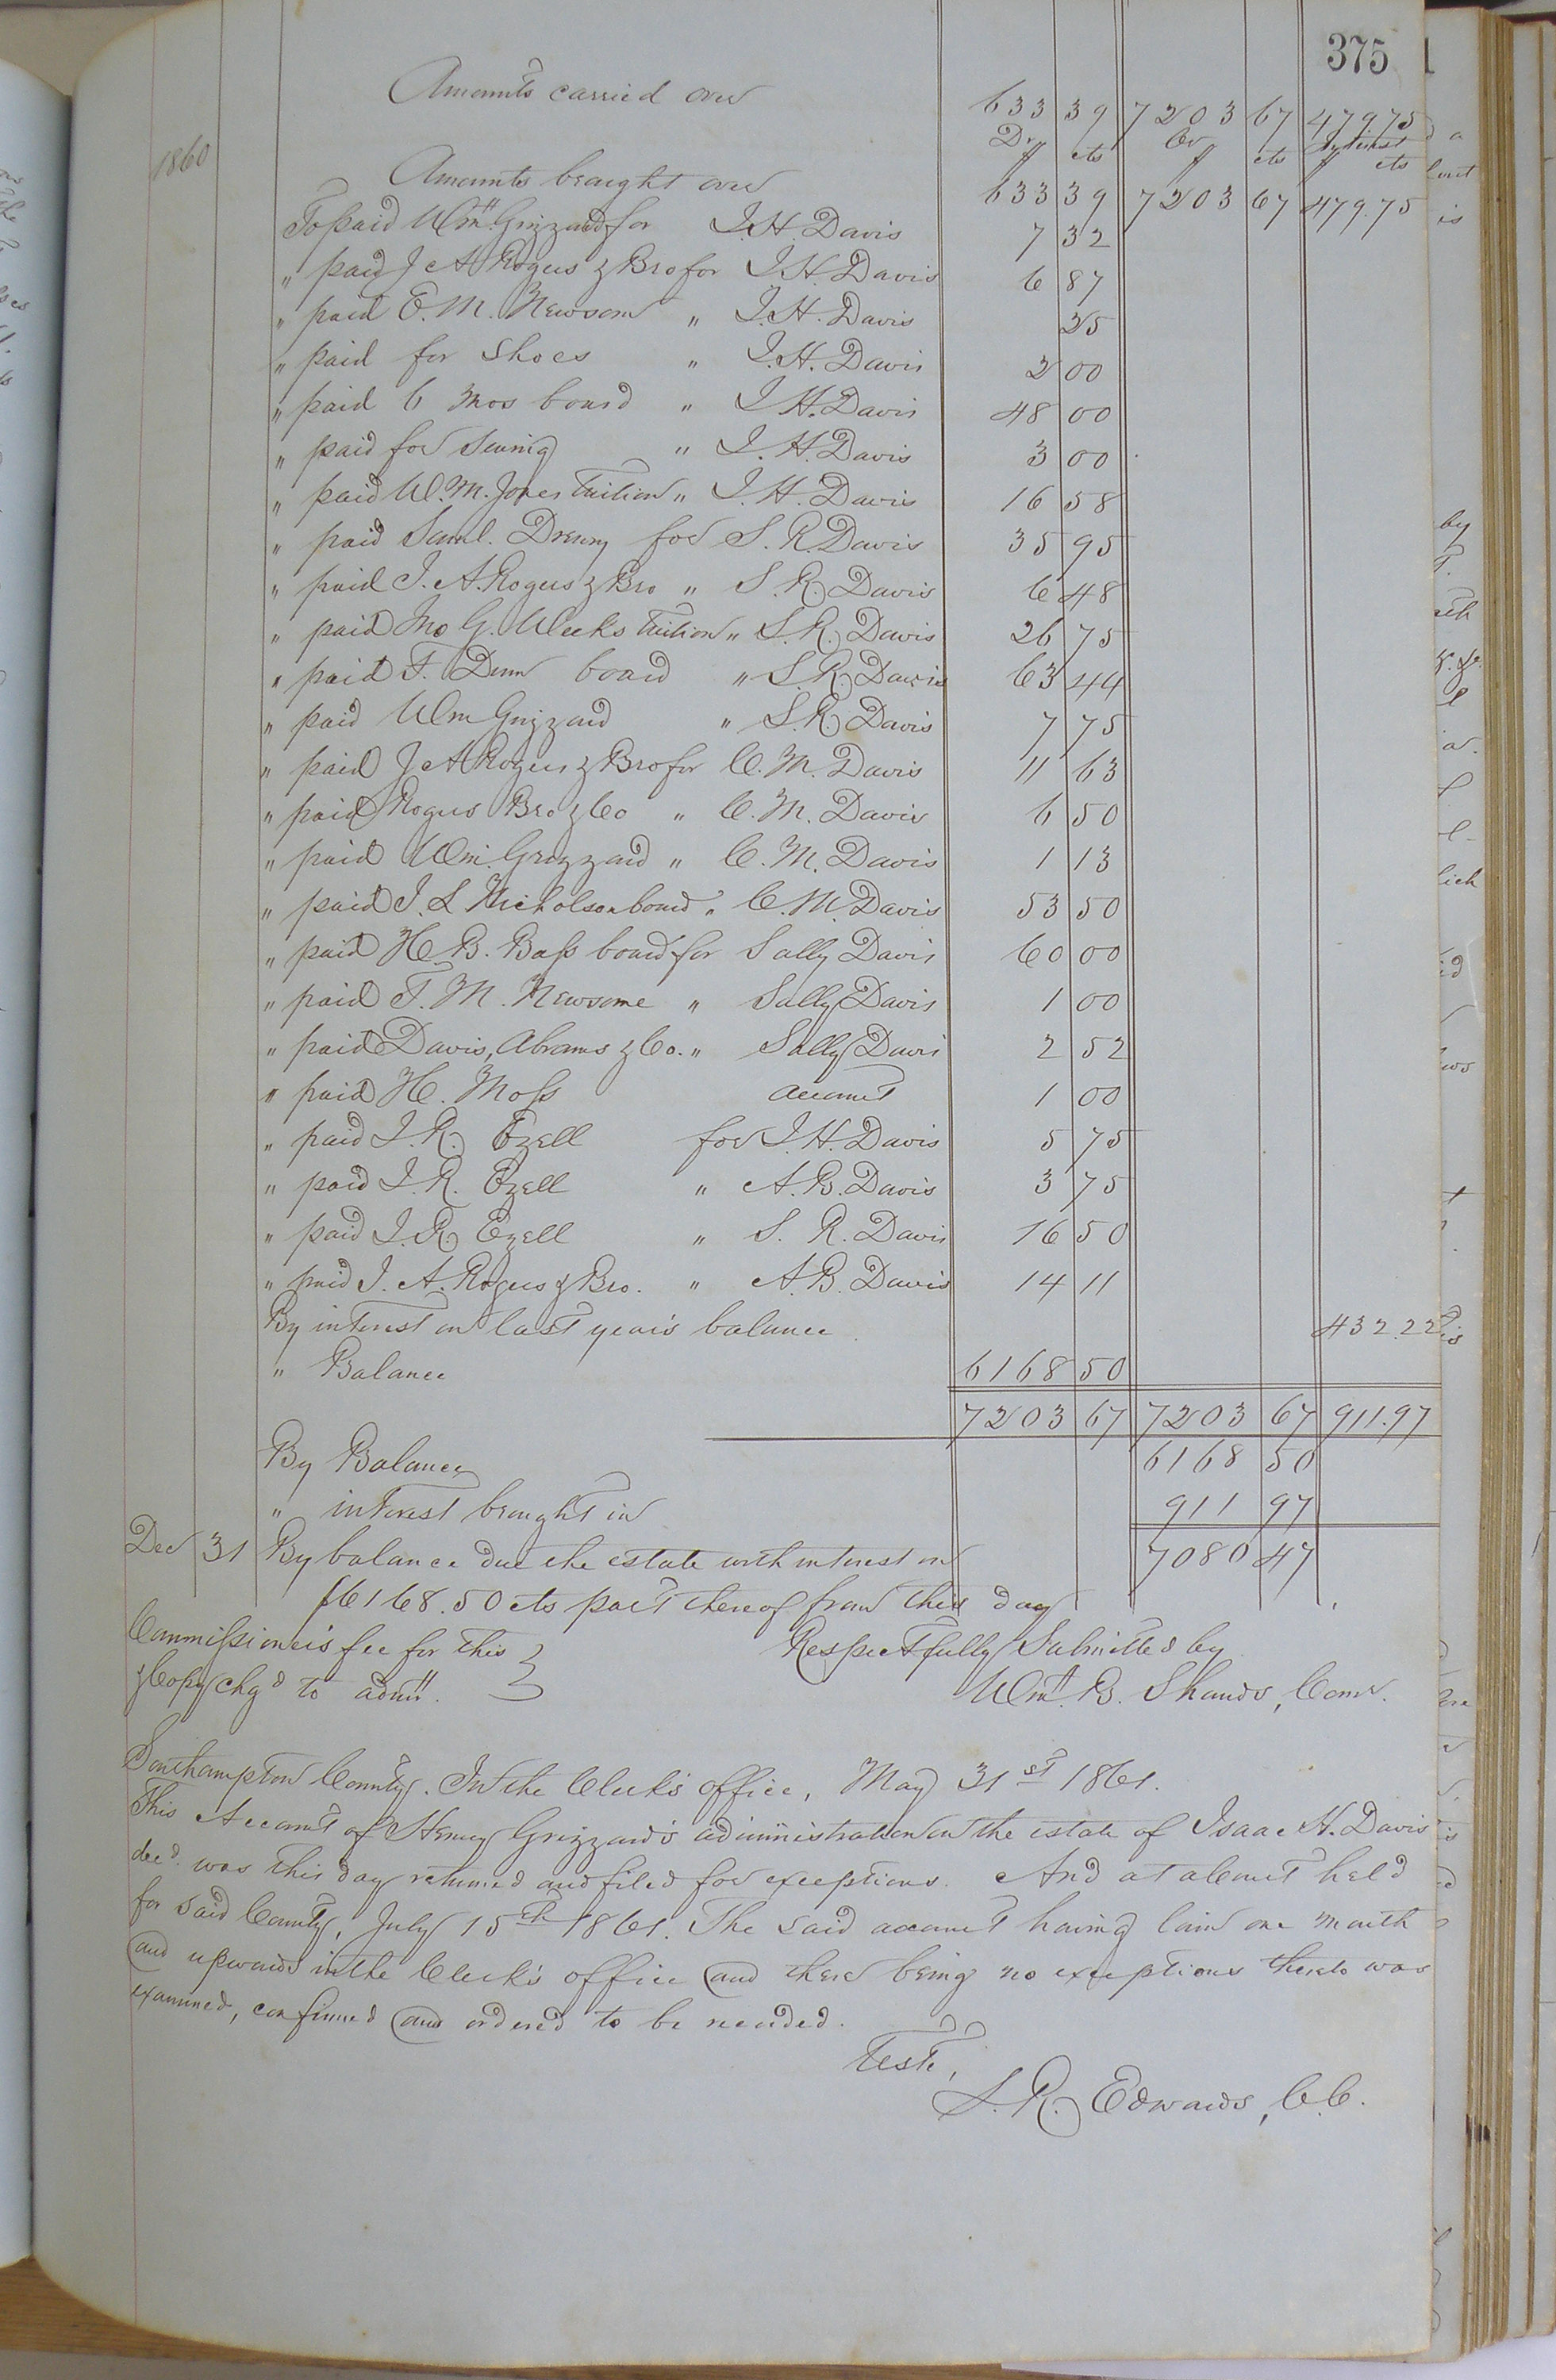 375
Amounts carried over 633 39 7203 67 479.75
Dr Cr Interest
1860 $ cts $ cts $ cts
Amounts brought over 633 39 7203 67 479.75
To paid Wm. Grizzard for J. H. Davis 7 32
" paid J A Rogers & Bro for J. H. Davis 6 87
" paid E. M. Newsom " J. H. Davis 25
" paid for Shoes " J. H. Davis 2 00
" paid 6 mos board " J H. Davis 48 00
" paid for Sewing " J. H. Davis 3 00
" paid W. M. Jones Tuition " J. H. Davis 16 58
" paid Saml. Drewry for S. R. Davis 35 95
" paid J. A. Rogers & Bro " S. R. Davis 6 48
" paid Jno G. Weeks Tuition " S. R. Davis 26 75
" paid F. Denn board " S. R. Davis 63 44
" paid Wm Grizzard " S. R. Davis 7 75
" paid J A Rogers & Bro for C. M. Davis 11 63
" paid Rogers Bro & Co " C. M. Davis 6 50
" paid Wm. Grizzard " C. M. Davis 1 13
" paid J. L Nicholson board " C. M. Davis 53 50
" paid H. B. Bass board for Sally Davis 60 00
" paid T. M. Newsome " Sally Davis 1 00
" paid Davis, Abrams & Co. " Sally Davis 2 52
" paid H. Moss account 1 00
" paid J. R. Ezell for J. H. Davis 5 75
" paid J. R. Ezell " A. B. Davis 3 75
" paid J. R. Ezell " S. R. Davis 16 50
" paid J. A. Rogers & Bro. " A. B. Davis 14 11
By interest on last year's balance 432.22
" Balance 6168 50
7203 67 7203 67 911.97
By Balance 6168 50
" interest brought in 911 97
Dec 31 By balance due the estate with interest on 7080 47
$6168.50 cts part thereof from this day
Commissioner's fee for this
& Copy chgd to admr.
Respectfully Submitted by
Wm. B. Shands, Comr.
Southampton County. In the Clerk's office, May 31st 1861.
This Account of Henry Grizzard's administration on the estate of Isaac H. Davis
decd. was this day returned and filed for exceptions. And at a Court held
for said County, July 15th 1861. The said account having lain one month
and upwards in the Clerk's office and there being no exceptions thereto was
examined, confirmed and ordered to be recorded.
Teste,
L. R. Edwards, C.C.